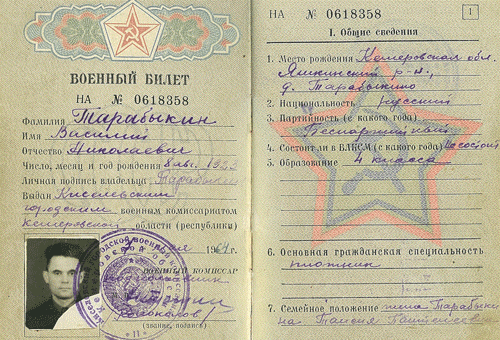 ВОЕННЫЙ БИЛЕТ
НА № 0618358
Фамилия Тарабыкин
Имя Василий
Отчество Николаевич
Число, месяц и год рождения 8 янв.
Личная подпись владельца Тарабыкин
Выдан Киселевским
городским военным комиссариатом
Кемеровской области (республики)
196
ВОЕННЫЙ КОМИССАР
подполковник
(звание, подпись)
НА № 0618358 1
I. Общие сведения
1. Место рождения Кемеровская обл.
Яшкинский р-н,
д. Тарабыкино
2. Национальность русский
3. Партийность (с какого года)
Беспартийный
4. Состоит ли в ВЛКСМ (с какого года)
5. Образование 4 класса
6. Основная гражданская специальность
плотник
7. Семейное положение жена Тарабыки
на Таисия